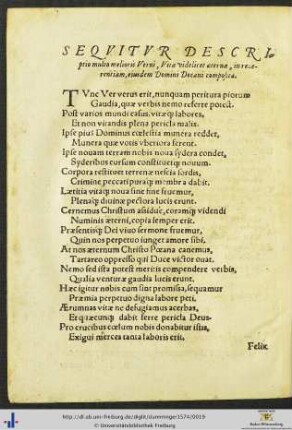 SEQVITVR DESCRI-
ptio multo melioris Verni, Vitæ videlicet æternæ, in reue-
rentiam, eiusdem Domini Decani composita.
TVnc Ver verus erit, nunquam peritura piorum
Gaudia, quæ verbis nemo referre potest.
Post varios mundi casus, vitæq; labores,
Et non vitandis plena pericla malis.
Ipse pius Dominus cœlestia munera reddet,
Munera quæ votis vberiora ferent.
Ipse nouam terram nobis noua sydera condet,
Syderibus cursum constituetq; nouum.
Corpora restituet terrenæ nescia sordis,
Crimine peccati puraq; membra dabit.
Lætitia vitaq; noua sine fine fruemur,
Plenaq; diuinæ pectora lucis erunt.
Cernemus Christum assiduè, coramq; videndi
Numinis æterni, copia semper erit.
Præsentiq; Dei viuo sermone fruemur,
Quin nos perpetuo iunget amore sibi.
At nos æternum Christo Pœana canemus,
Tartareo oppresso qui Duce victor ouat.
Nemo sed ista potest meritis compendere verbis,
Qualia venturæ gaudia lucis erunt.
Hæc igitur nobis cum sint promissa, sequamur
Præmia perpetuo digna labore peti.
Ærumnas vitæ ne defugiamus acerbas,
Et quæcunq; dabit ferre pericla Deus.
Pro crucibus cœlum nobis donabitur istis,
Exigui merces tanta laboris erit.
Felix
http://dl.ub.uni-freiburg.de/diglit/
© Universitätsbibliothek Freiburg